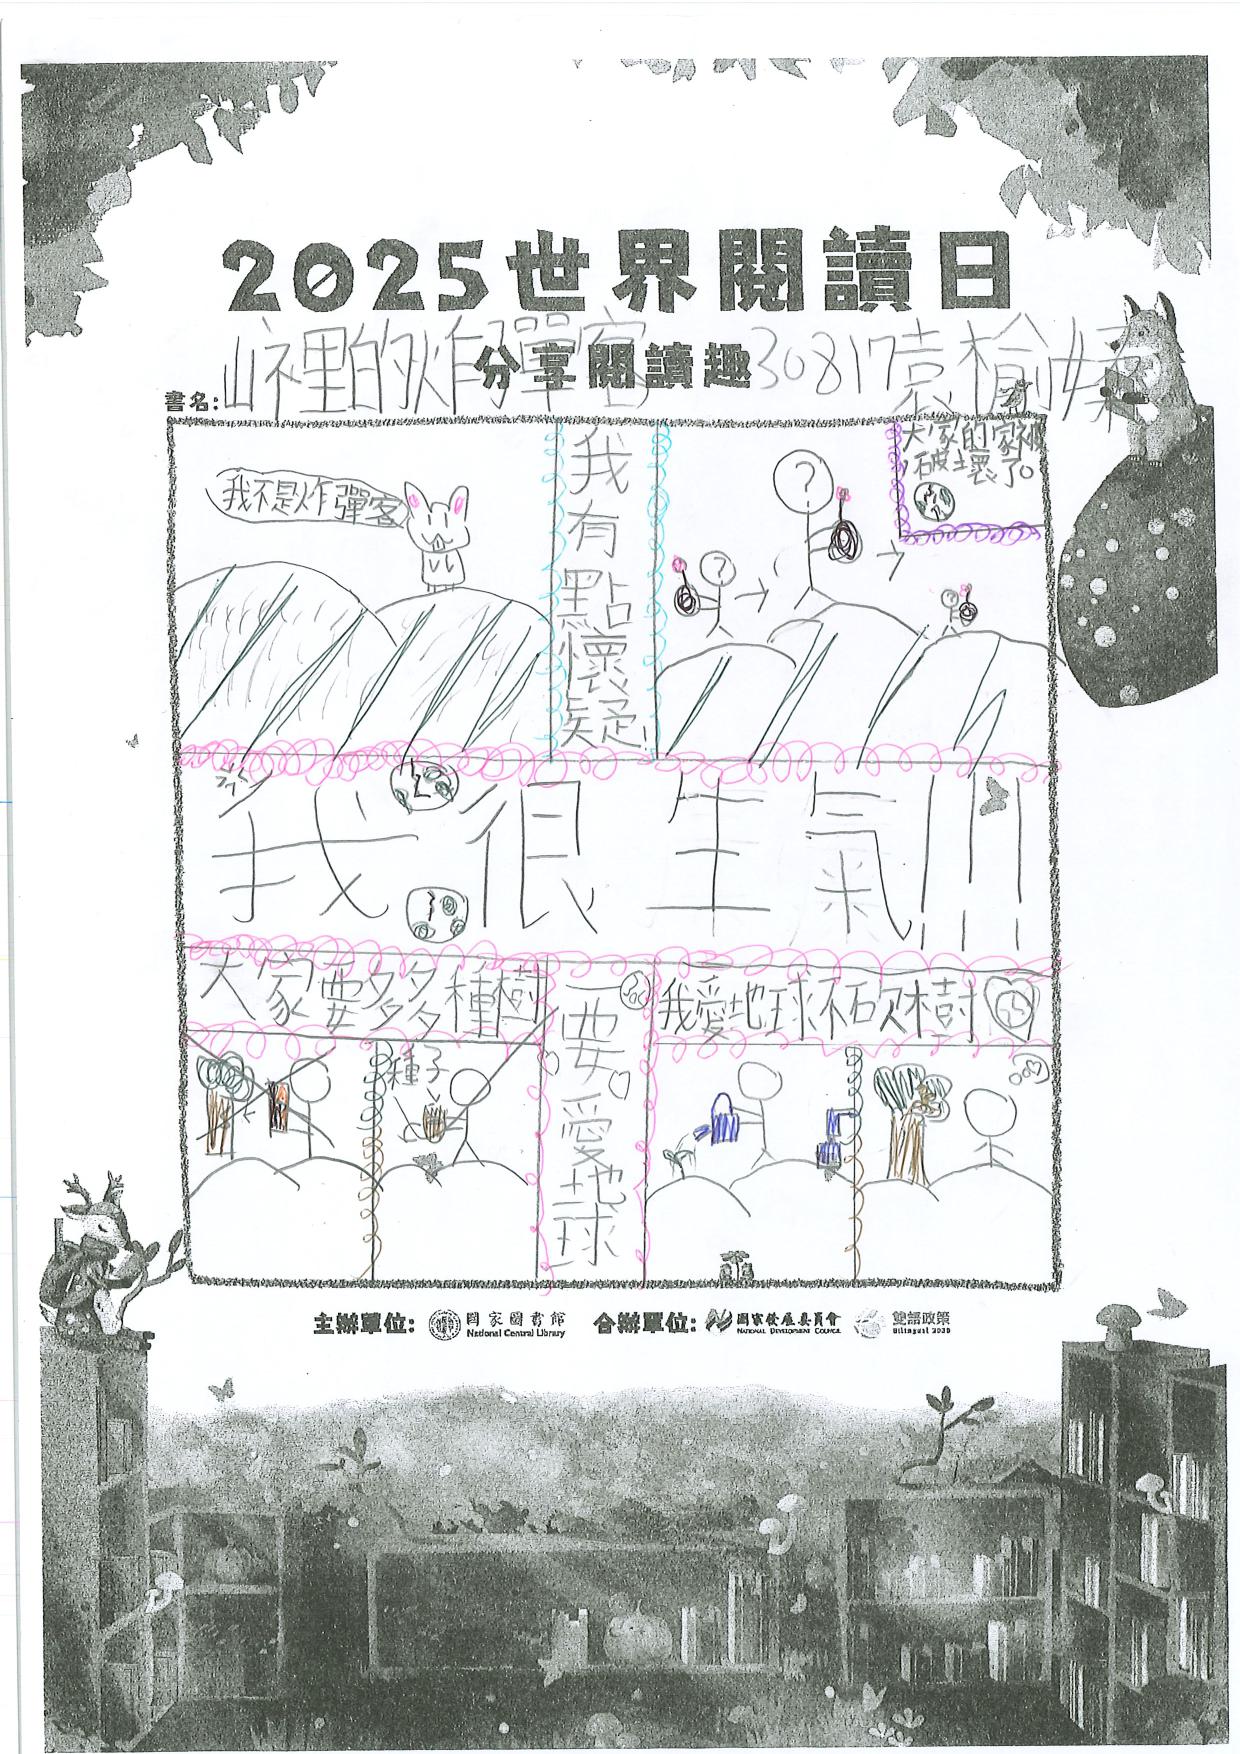 2025世界閱讀日
分享閱讀趣
書名:山裡的炸彈客 30817袁榆
我不是炸彈客
我有點懷疑!
大家的家被破壞了。
我很生氣!!!
大家要多多種樹
種子
一要愛地球
我愛地球不石欠樹
主辦單位: 國家圖書館 National Central Library 合辦單位: 國家發展委員會 NATIONAL DEVELOPMENT COUNCIL 雙語政策 Bilingual 2030